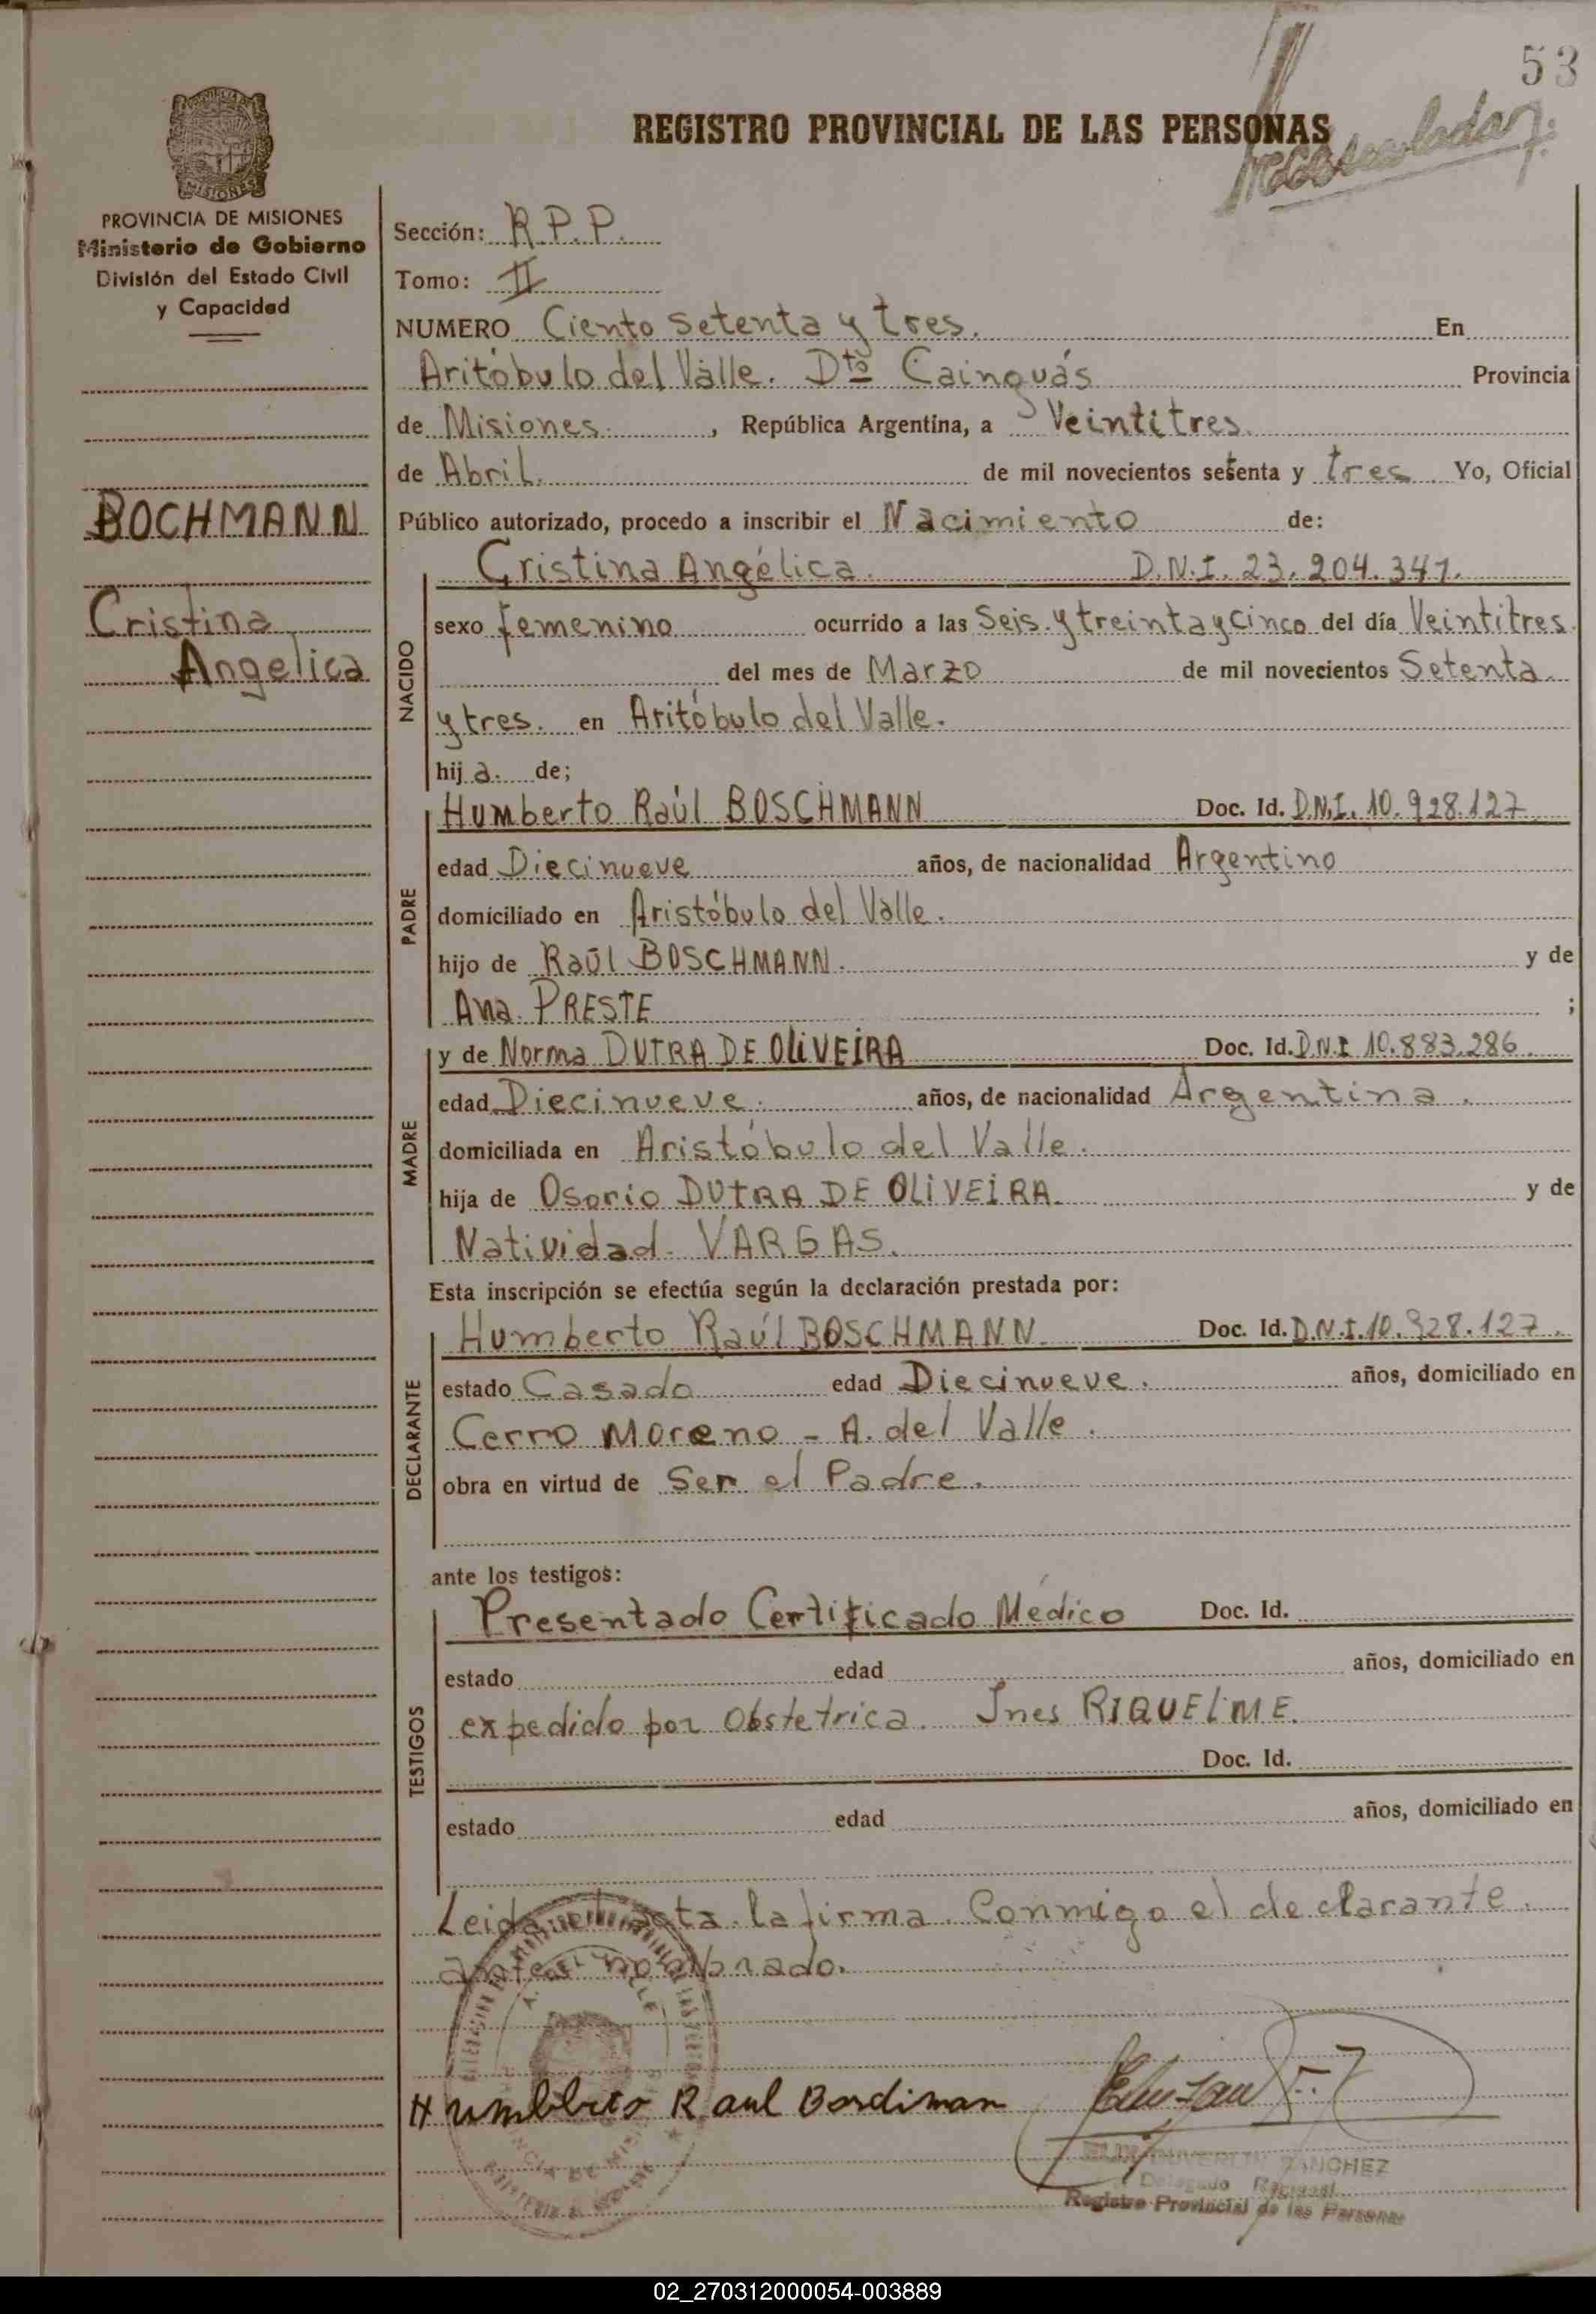 53
REGISTRO PROVINCIAL DE LAS PERSONAS
PROVINCIA DE MISIONES
Ministerio de Gobierno
División del Estado Civil
y Capacidad
BOCHMANN
Cristina
Angelica
Sección: R.P.P.
Tomo: II
NUMERO Ciento Setenta y tres. En
Aritóbulo del Valle. Dto Cainguás Provincia
de Misiones. , República Argentina, a Veintitres.
de Abril. de mil novecientos setenta y tres. Yo, Oficial
Público autorizado, procedo a inscribir el Nacimiento de:
NACIDO
Cristina Angélica. D.N.I. 23.204.341.
sexo femenino ocurrido a las Seis y treinta y cinco del día Veintitres.
del mes de Marzo de mil novecientos Setenta
y tres. en Aritóbulo del Valle.
hija. de;
PADRE
Humberto Raúl BOSCHMANN Doc. Id. D.N.I. 10.928.127
edad Diecinueve años, de nacionalidad Argentino
domiciliado en Aristóbulo del Valle.
hijo de Raúl BOSCHMANN. y de
Ana. PRESTE ;
MADRE
y de Norma DUTRA DE OLiVEiRA Doc. Id. D.N.I 10.883.286.
edad Diecinueve. años, de nacionalidad Argentina.
domiciliada en Aristóbulo del Valle.
hija de Osorio DUTRA DE OLiVEiRA. y de
Natividad. VARGAS.
Esta inscripción se efectúa según la declaración prestada por:
DECLARANTE
Humberto Raúl BOSCHMANN. Doc. Id. D.N.I. 10.928.127.
estado Casado edad Diecinueve. años, domiciliado en
Cerro Moreno - A. del Valle.
obra en virtud de Ser el Padre.
ante los testigos:
TESTIGOS
Presentado Certificado Médico Doc. Id.
estado edad años, domiciliado en
expedido por Obstetrica. Ines RIQUELME.
Doc. Id.
estado edad años, domiciliado en
Leida el acta. la firma. Conmigo el declarante.
antes nombrado.
A. DEL VALLE
Raul
SANCHEZ
Delegado Regional
Registro Provincial de las Personas
02_270312000054-003889